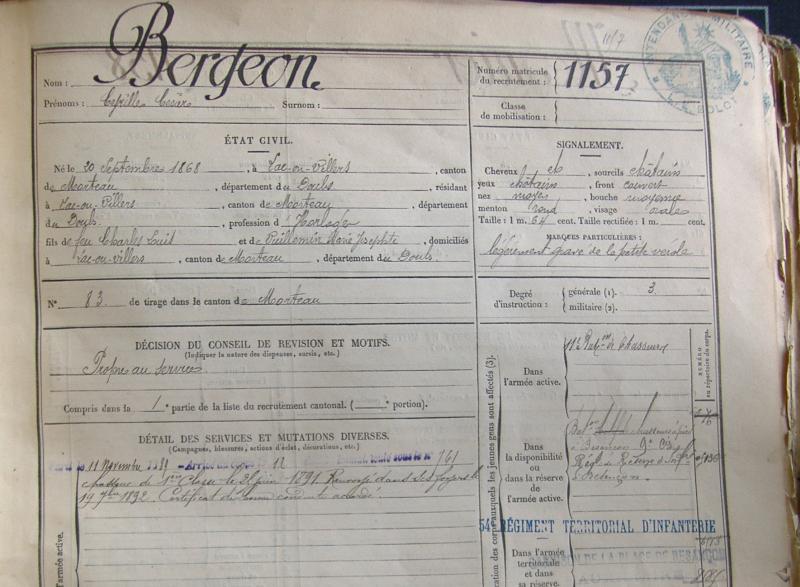 Bergeon
Nom :
Prénoms : Cyrille César Surnom :
Numéro matricule du recrutement : 1157
Classe de mobilisation :
INTENDANCE MILITAIRE
ÉTAT CIVIL.
Né le 20 Septembre 1868, à Lac-ou-Villers, canton
de Morteau, département du Doubs, résidant
à Lac-ou-Villers, canton de Morteau, département
du Doubs, profession d'Horloger
fils de feu Charles Louis et de Vuillemin Marie Josephte, domiciliés
à Lac-ou-villers, canton de Morteau, département du Doubs.
SIGNALEMENT.
Cheveux et sourcils châtains
yeux châtains, front couvert
nez moyen, bouche moyenne
menton rond, visage ovale
Taille : 1 m. 64 cent. Taille rectifiée : 1 m. cent.
MARQUES PARTICULIÈRES :
légèrement gravé de la petite verole
N° 83 de tirage dans le canton de Morteau
Degré d'instruction : générale (1). 3
militaire (2).
DÉCISION DU CONSEIL DE REVISION ET MOTIFS.
(Indiquer la nature des dispenses, sursis, etc.)
Propre au service
Compris dans la 1e partie de la liste du recrutement cantonal. ( e portion).
DÉTAIL DES SERVICES ET MUTATIONS DIVERSES.
(Campagnes, blessures, actions d'éclat, décorations, etc.)
11 Novembre 1889 Arrivé au corps le 12 sous le n° 761
chasseur de 1ère Classe le 26 juin 1891. Renvoyé dans ses foyers le
19 7bre 1892. Certificat de bonne conduite accordé.
Dans l'armée active.
Bat.on de Chasseurs
Dans la disponibilité ou dans la réserve de l'armée active.
Besançon
54e RÉGIMENT TERRITORIAL D'INFANTERIE
DE LA PLACE DE BESANÇON
Dans l'armée territoriale et dans sa réserve.
corps auxquels les jeunes gens sont affectés (3).
NUMÉRO au répertoire du corps.
armée active.